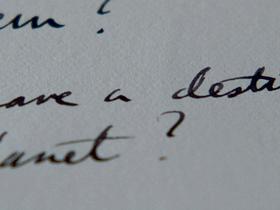 em?
ave a dest
lanet ?